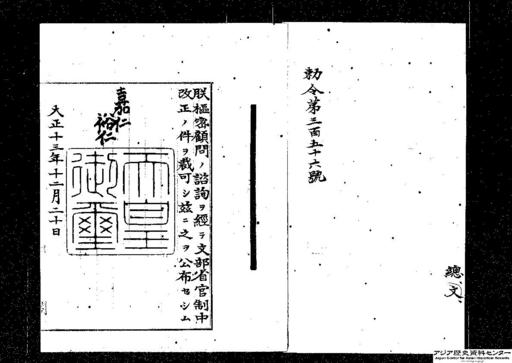 勅令第三百五十六號
總
文
朕樞密顧問ノ諮詢ヲ經テ文部省官制中
改正ノ件ヲ裁可シ茲ニ之ヲ公布セシム
嘉仁
裕仁
天皇
御璽
大正十三年十二月二十日
アジア歴史資料センター
Japan Center for Asian Historical Records